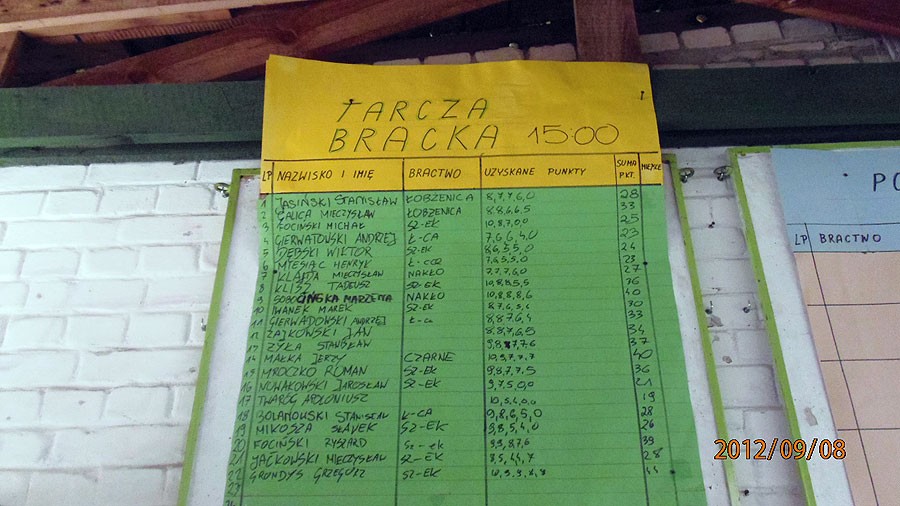 TARCZA
BRACKA 15:00
LP NAZWISKO I IMIĘ BRACTWO UZYSKANE PUNKTY SUMA PKT. MIEJSCE
1 JASIŃSKI STANISŁAW ŁOBŻENICA 8,7,7,6,0 28
2 GALICA MIECZYSŁAW ŁOBŻENICA 8,8,6,6,5 33
3 FOCIŃSKI MICHAŁ SZ-EK 10,8,7,0,0 25
4 GIERWATOWSKI ANDRZEJ Ł-CA 7,6,6,4,0 23
5 DĘBSKI WIKTOR SZ-EK 24
6 MIESIĄC HENRYK 7,6,5,5,0 23
7 KLAJDA MIECZYSŁAW NAKŁO 7,7,7,6,0 27
8 KLISZ TADEUSZ SZ-EK
9 MARZENA NAKŁO 10,8,8,8,6 40
10 IWANEK MAREK SZ-EK 30
11 GIERWADOWSKI ANDRZEJ Ł-CA 8,8,7,6,4 33
12 ZAJKOWSKI JAN 8,8,7,6,5 34
13 ZYŁA STANISŁAW 37
14 MAKKA JERZY CZARNE 40
15 MROCZKO ROMAN SZ-EK 9,8,7,7,5 36
16 NOWAKOWSKI JAROSŁAW SZ-EK 9,7,5,0,0 21
17 TWARÓG APOLONIUSZ 10,5,4,0,0 19
18 BOLANOWSKI STANISŁAW Ł-CA 9,8,6,5,0 28
19 MIKOSZA SŁAWEK SZ-EK 9,8,5,4,0 26
20 FOCIŃSKI RYSZARD SZ-EK 9,9,8,7,6 39
21 JAĆKOWSKI MIECZYSŁAW SZ-EK 28
22 GRONDYS GRZEGORZ SZ-EK 44
23
24
PO
LP BRACTWO
2012/09/08